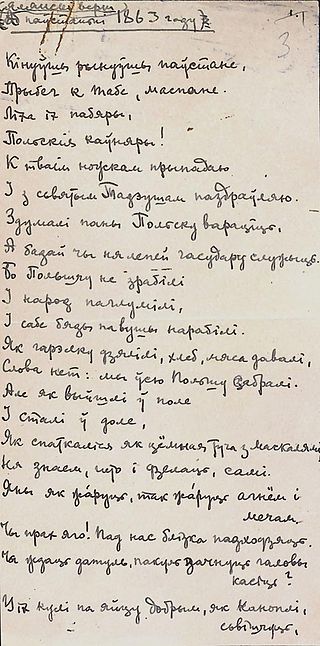 Сялянскі верш
Аб паўстаньні 1863 году
3
Кінуўшы рынуўшы паўстане,
Прыбег к табе, маспане.
Літа іх пабяры,
Польскія каўняры!
К тваім ножкам прыпадаю
І з сьвятым Тадэушам паздраўляю.
Здумалі паны Польску варацiць,
А бадай чы ня лепей гасудару служыць.
Бо Польшчу не зрабілі
І народ паглумілі,
І сабе бяды навушы нарабілі.
Як гарэлку дзялілі, хлеб, мяса давалі,
Слова нет: мы ўсю Польшу забралі.
Але як выйшлі ў поле
І сталі ў доле,
Як спаткаліся як цёмная туча з маскалямі
Ня знаем, што і дзелаць, самі.
Яны як жа́руць, так жа́руць агнём і
мечам.
Чы праў яго! Пад нас блізка падходзяць.
Чы ждаць датуль, пакуль začнуць галовы
касіць?
У іх кулі па яйцу добрым, як Каноплі,
сьвішчуць,